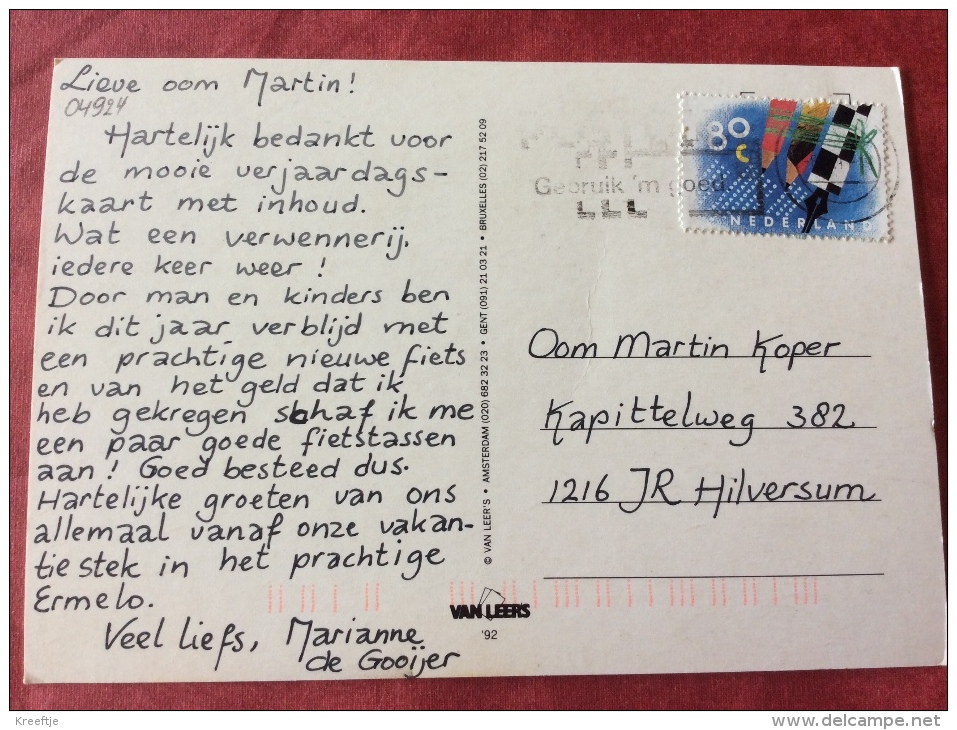 Lieve oom Martin!
04924
Hartelijk bedankt voor
de mooie verjaardags-
kaart met inhoud.
Wat een verwennerij,
iedere keer weer!
Door man en kinders ben
ik dit jaar verblijd met
een prachtige nieuwe fiets
en van het geld dat ik
heb gekregen schaf ik me
een paar goede fietstassen
aan! Goed besteed dus.
Hartelijke groeten van ons
allemaal vanaf onze vakan-
tiestek in het prachtige
Ermelo.
Veel liefs, Marianne
de Gooijer
© VAN LEER'S • AMSTERDAM (020) 682 32 23 • GENT (091) 21 03 21 • BRUXELLES (02) 217 52 09
VAN LEER'S
'92
80 c
NEDERLAND
Gebruik 'm goed
Oom Martin Koper
Kapittelweg 382
1216 JR Hilversum
Kreeftje
www.delcampe.net